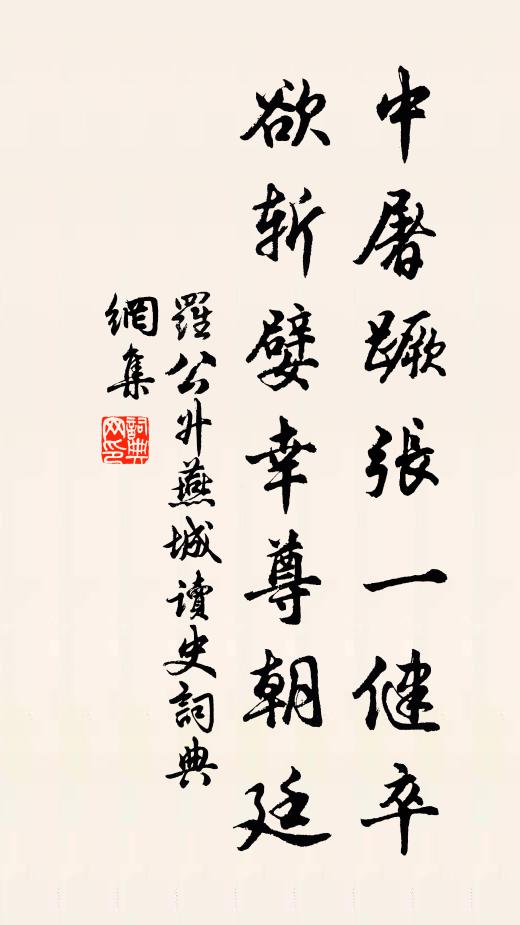 中屠蹶張一健卒
欲斬嬖幸尊朝廷
羅公升燕城讀史詞典
網集
詞典網印